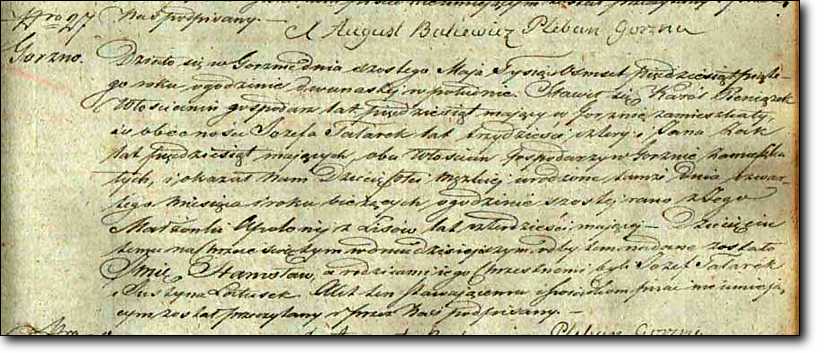 Nro 97 Nas podpisany. —
X August Bakiewicz Pleban Gorzna
Gorzno.
Działo się w Gorznie dnia szostego Maja Tysiąc Ośmset Pięćdziesiąt piąte-
go roku o godzinie dwunastej w południe. Stawił się Karól Pieniązek
Włościanin gospodarz lat pięćdziesiąt mający w Gorznie zamieszkały,
w obecności Jozefa Tatarek lat trzydzieści cztery i Jana Kak
lat pięćdziesiąt mających, obu Włościan Gospodarzy w Gorznie zamieszka-
łych, i okazał nam Dziecię płci męzkiej urodzone tamże dnia czwar-
tego miesiąca i roku bieżących o godzinie szostej rano z Jego
Małżonki Apolonij z Lisów lat czterdzieści mającej — Dziecięciu
temu na Chrzcie Świętym w dniu dzisiejszym odbytem nadane zostało
Imie Stanisław, a rodzicami jego Chrzestnemi byli Jozef Tatarek
i Justyna Latusek. Akt ten stawającemu i świadkom pisać nie umieją-
cym został przeczytany i przez Nas podpisany. —
Pleban Gorzna